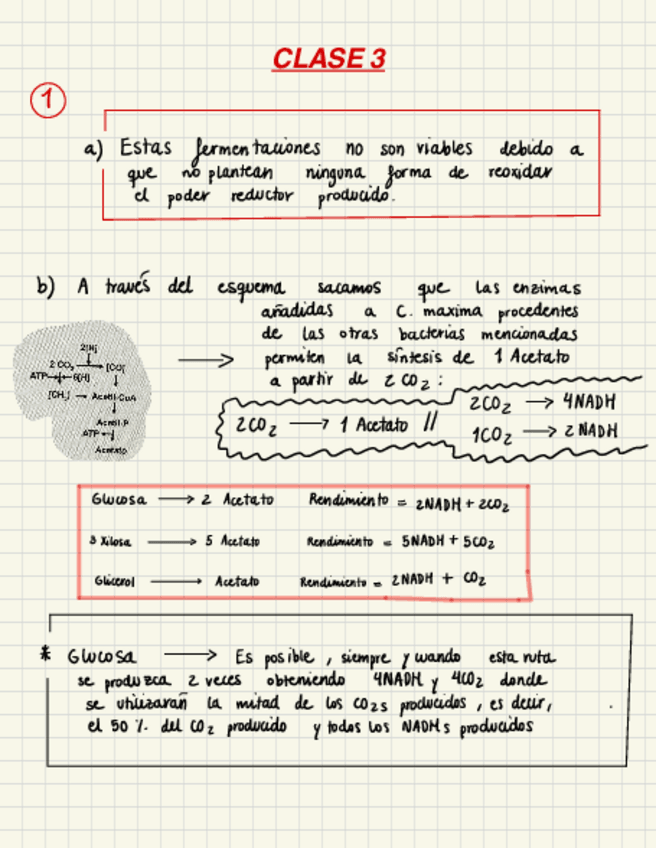 CLASE 3
1
a) Estas fermentaciones no son viables debido a
que no plantean ninguna forma de reoxidar
el poder reductor producido.
b) A través del esquema sacamos que las enzimas
añadidas a C. maxima procedentes
de las otras bacterias mencionadas
permiten la síntesis de 1 Acetato
a partir de 2 CO₂ :
2[H]
2 CO₂ → [CO]
ATP 6[H]
[CH₃] → Acetil-CoA
Acetil-P
ATP
Acetato
2CO₂ → 1 Acetato //
2CO₂ → 4NADH
1CO₂ → 2 NADH
Glucosa → 2 Acetato Rendimiento = 2NADH + 2CO₂
3 Xilosa → 5 Acetato Rendimiento = 5NADH + 5CO₂
Glicerol → Acetato Rendimiento = 2NADH + CO₂
* Glucosa → Es posible, siempre y cuando esta ruta
se produzca 2 veces obteniendo 4NADH y 4CO₂ donde
se utilizarán la mitad de los CO₂s producidos, es decir,
el 50 % del CO₂ producido y todos los NADHs producidos